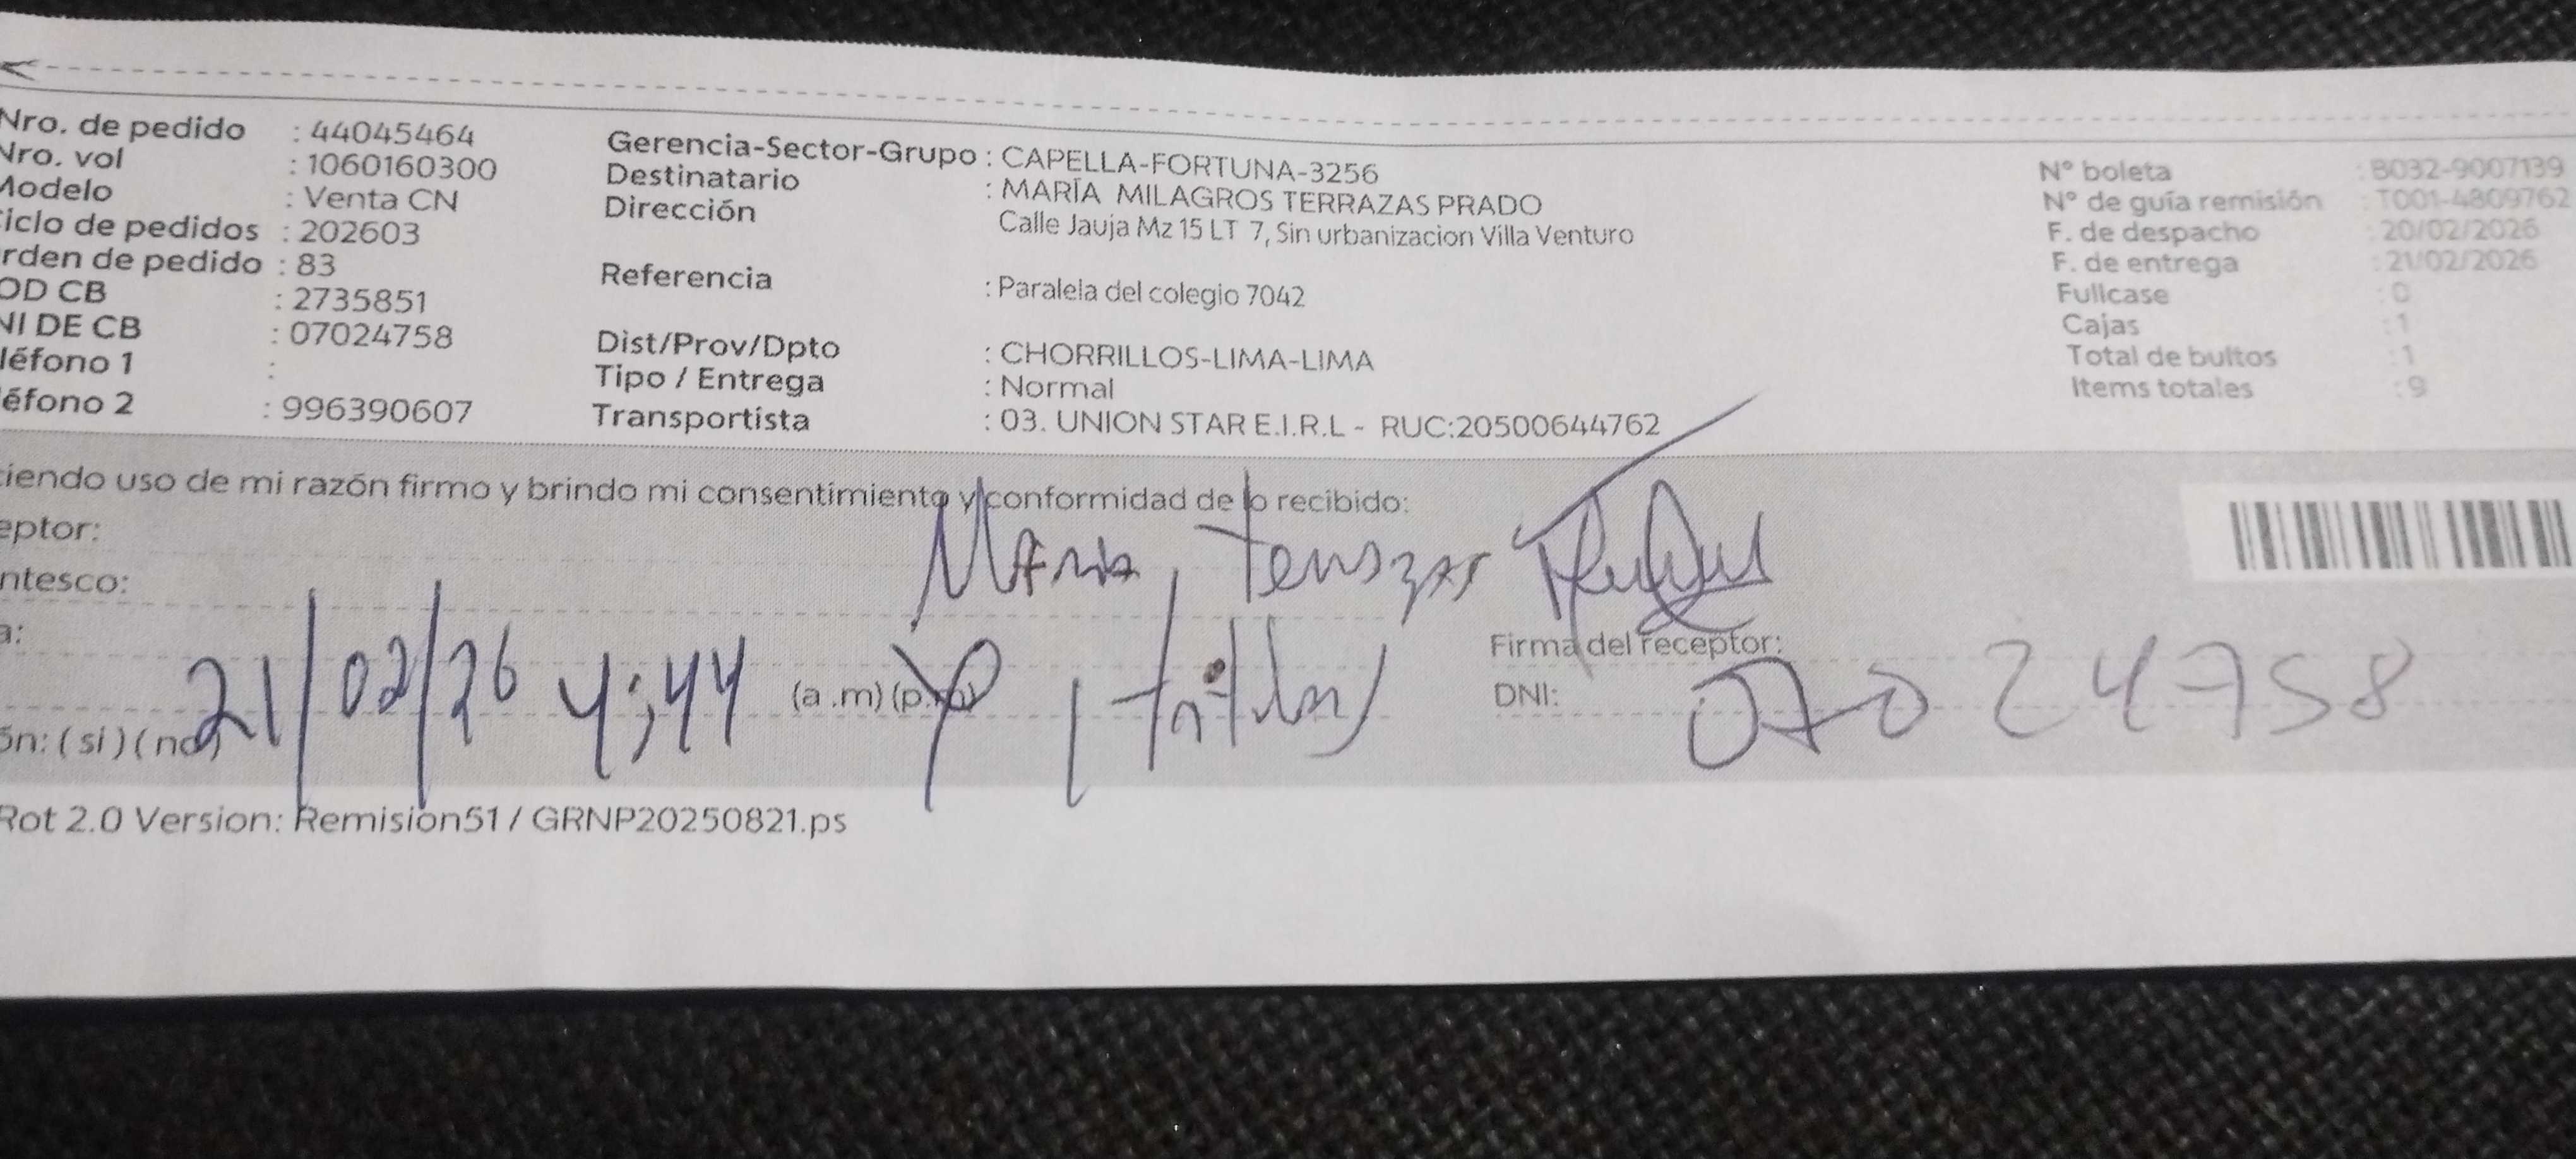 Nro. de pedido : 44045464
Nro. vol : 1060160300
Modelo : Venta CN
iclo de pedidos : 202603
rden de pedido : 83
OD CB : 2735851
NI DE CB : 07024758
léfono 1 :
éfono 2 : 996390607
Gerencia-Sector-Grupo : CAPELLA-FORTUNA-3256
Destinatario : MARÍA MILAGROS TERRAZAS PRADO
Dirección Calle Jauja Mz 15 LT 7, Sin urbanizacion Villa Venturo
Referencia : Paralela del colegio 7042
Dist/Prov/Dpto : CHORRILLOS-LIMA-LIMA
Tipo / Entrega : Normal
Transportista : 03. UNION STAR E.I.R.L - RUC:20500644762
N° boleta : B032-9007139
N° de guía remisión : T001-4809762
F. de despacho : 20/02/2026
F. de entrega : 21/02/2026
Fullcase : 0
Cajas : 1
Total de bultos : 1
Items totales : 9
ciendo uso de mi razón firmo y brindo mi consentimiento y conformidad de lo recibido:
eptor: Maria Terrazas
ntesco:
a: 21/02/26 4:44 (a .m) (p.m)
Firma del receptor:
DNI: 07024758
ón: ( si ) ( no )
Rot 2.0 Version: Remision51 / GRNP20250821.ps